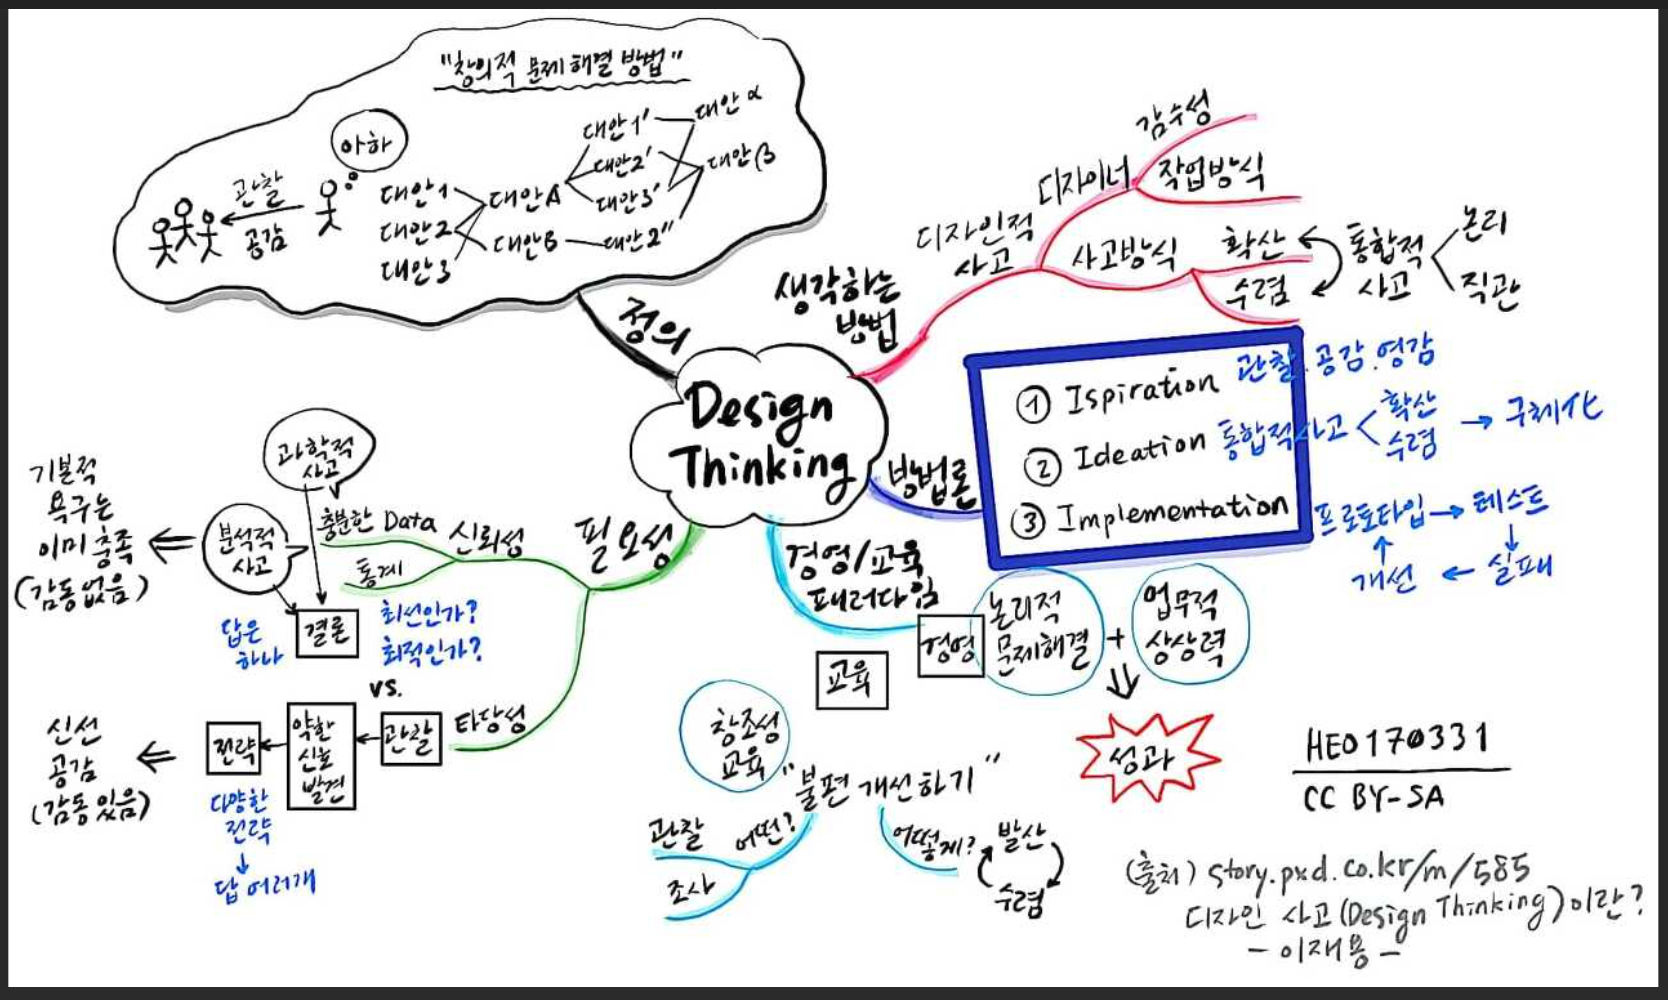 "창의적 문제 해결 방법"
아하
관찰
공감
대안1
대안2
대안3
대안A
대안B
대안1'
대안2'
대안3'
대안2"
대안α
대안β
정의
Design
Thinking
생각하는
방법
디자인적
사고
디자이너
감수성
작업방식
사고방식
확산
수렴
통합적
사고
논리
직관
방법론
① Ispiration 관찰.공감.영감
② Ideation 통합적사고
확산
수렴
→ 구체화
③ Implementation
프로토타입→테스트
↓
실패
←
개선
↑
경영/교육
패러다임
경영
논리적
문제해결
+
업무적
상상력
성과
교육
창조성
교육
"불편 개선하기"
어떤?
관찰
조사
어떻게?
발산
수렴
필요성
신뢰성
충분한 Data
통계
과학적
사고
분석적
사고
결론
답은
하나
최선인가?
최적인가?
기본적
욕구는
이미 충족
(감동없음)
vs.
타당성
관찰
약한
신호
발견
전략
다양한
전략
↓
답 여러개
신선
공감
(감동있음)
HEO170331
CC BY-SA
(출처) story.pxd.co.kr/m/585
디자인 사고(Design Thinking)이란?
- 이재용 -